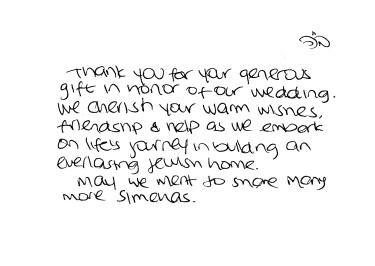 Thank you for your generous
gift in honor of our wedding.
We cherish your warm wishes,
friendship & help as we embark
on life's journey in building an
everlasting Jewish home.
May we merit to share many
more simchas.